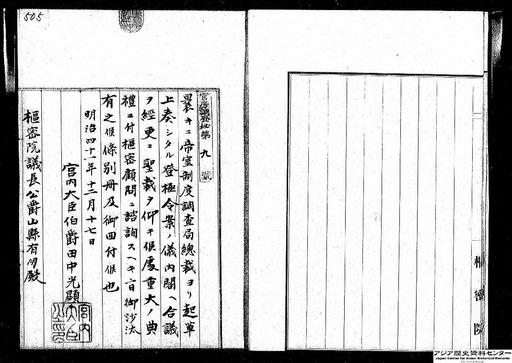 505
官房調査秘第九號
曩キニ帝室制度調査局總裁ヨリ起草
上奏シタル登極令案ノ儀内閣ヘ合議
ヲ經更ニ聖裁ヲ仰キ候處重大ノ典
禮ニ付樞密顧問ニ諮詢スヘキ旨御沙汰
有之候條別冊及御回付候也
明治四十一年十二月十七日
宮内大臣伯爵田中光顯
樞密院議長公爵山縣有朋殿
樞密院
アジア歴史資料センター
Japan Center for Asian Historical Records